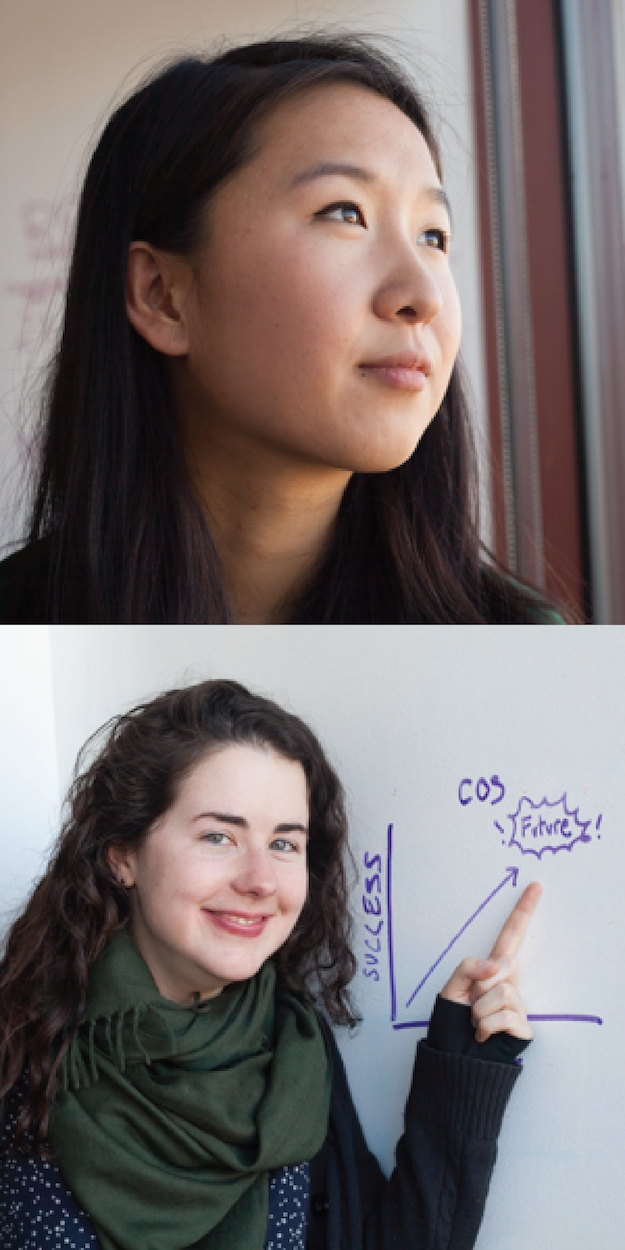 COS
Future!
SUCCESS